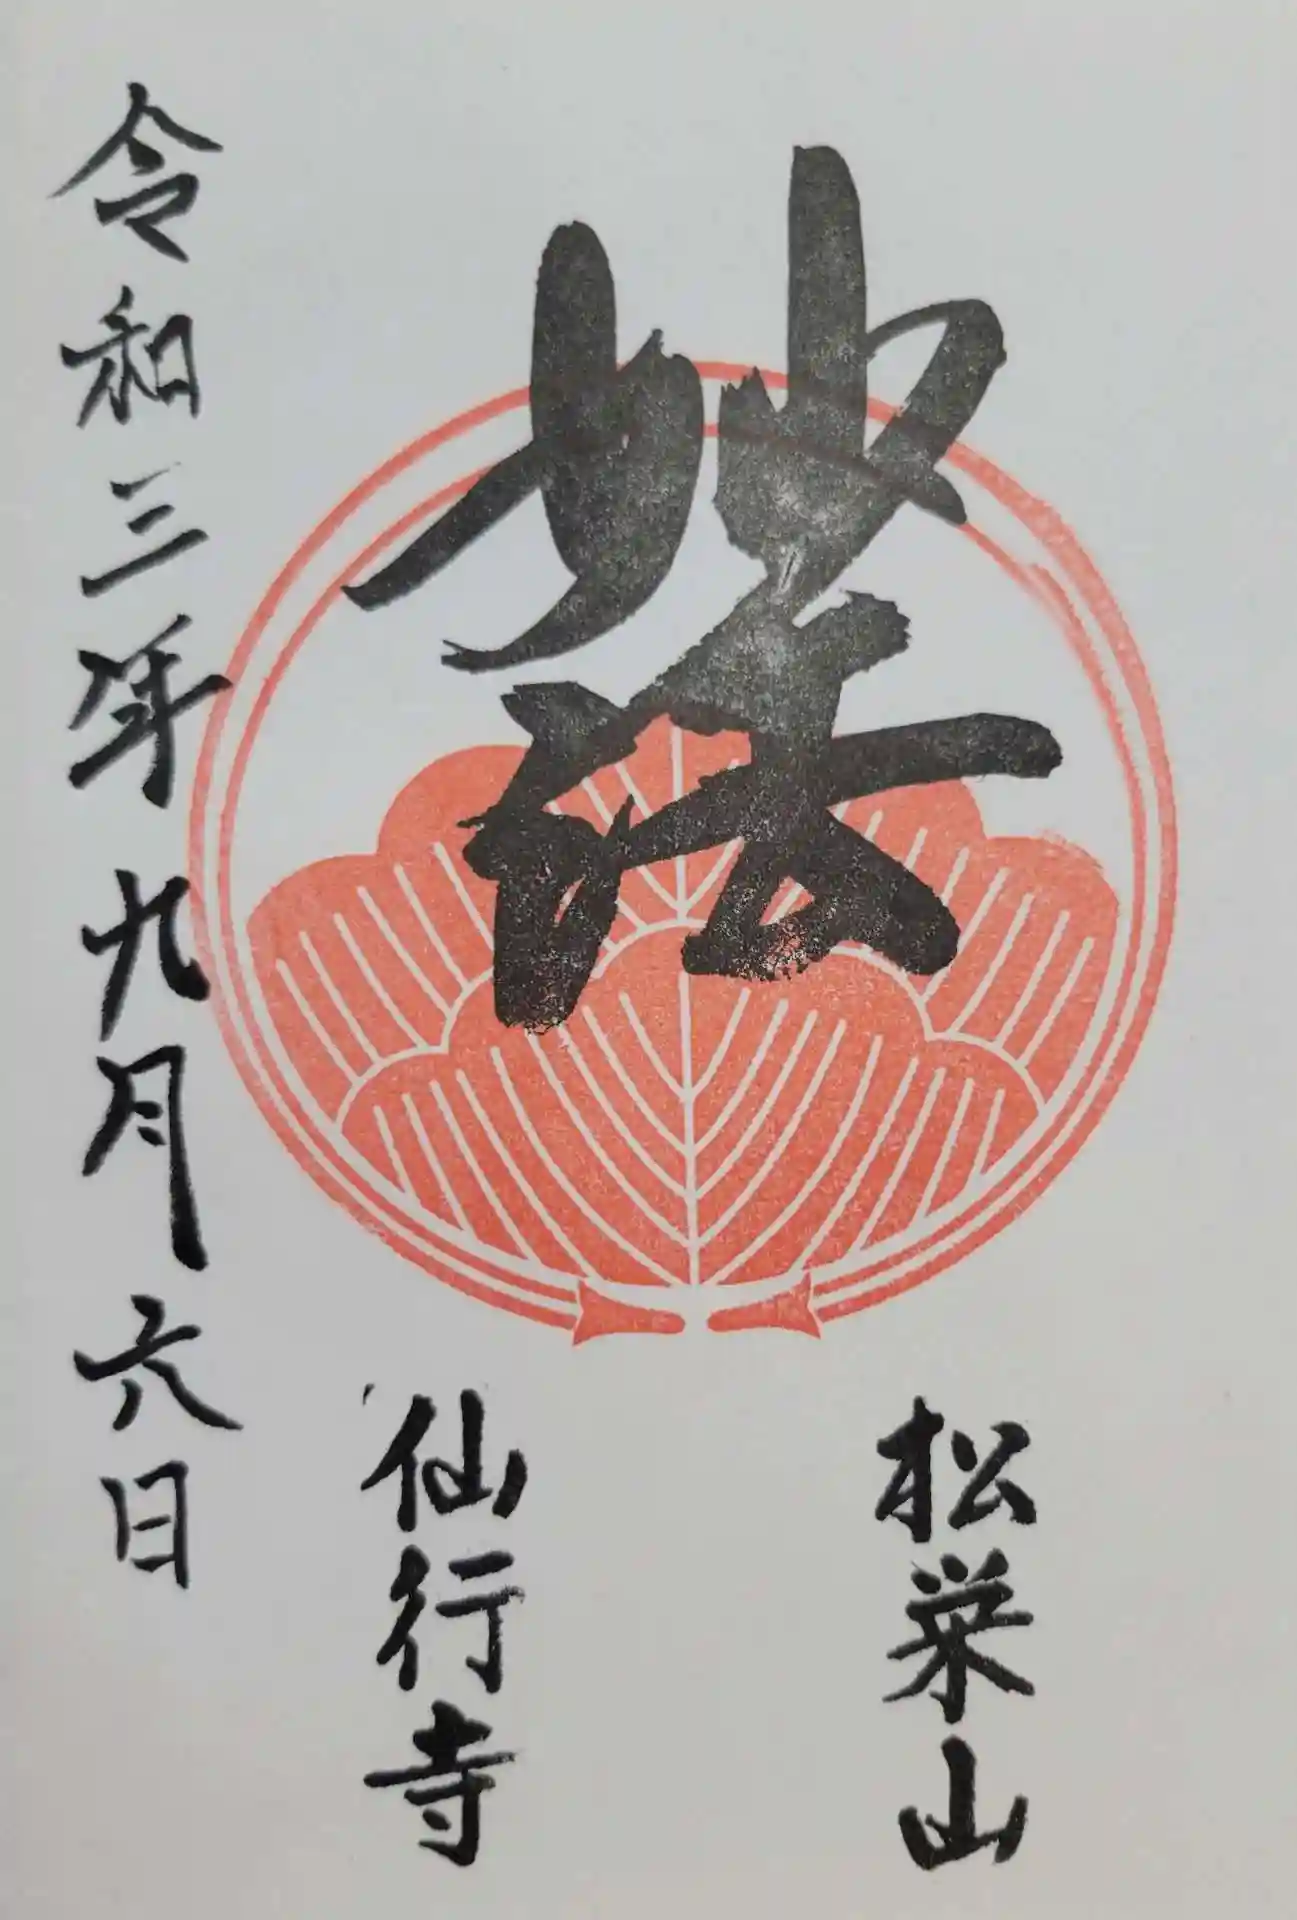 松栄山
妙法
仙行寺
令和三年九月六日